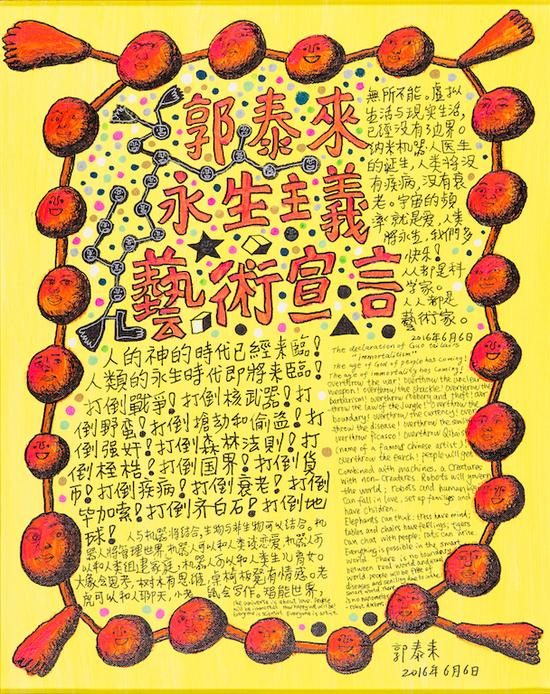 郭泰來
永生主義
藝術宣言
人的神的時代已經來臨!
人類的永生時代即將來臨!
打倒戰爭!打倒核武器!打
倒野蠻!打倒搶劫和偷盜!打
倒强奸!打倒森林法則!打
倒桎梏!打倒国界!打倒貨
币!打倒疾病!打倒衰老!打倒
毕加索!打倒齐白石!打倒地
球!
人与机器將结合,生物与非生物可以结合。机
器人將管理世界,机器人可以和人类谈恋爱,机器人可
以和人类组建家庭,机器人可以和人类生儿育女。
大象会思考,树木有思維,桌椅板凳有情感。老
虎可以和人聊天,小老鼠会写作。智能世界,
無所不能。虛拟
生活与现实生活,
已經没有边界。
纳米机器人医生
的诞生,人类将没
有疾病,没有衰
老。宇宙的頻
率就是爱,人类
將永生,我們多
快乐!
人人都是科
学家。
人人都是
藝術家。
2016年6月6日
The declaration of Guo tai lai's
"immortalitism"
The age of God's people has coming!
The age of immortality has coming!
overthrow the war! overthrow the nuclear
weapon! overthrow the
overthrow robbery and theft! over
throw the law of the Jungle! overthrow the
boundary! overthrow the currency! over
throw the disease! overthrow the
overthrow picasso! overthrow Qibaishi
(name of a famous Chinese artist)!
overthrow the earth! people will get
Combined with machines, a Creatures
with non-Creatures. Robots will govern
the world; robots and human
can fall in love, set up families and
have children.
Elephants can think; trees have mind;
Tables and chairs have feelings; tigers
can chat with people; rats can write.
Everything is possible in the smart
world. There is no boundary
between real world and
world. people will be free of
diseases and
郭泰来
2016年6月6日